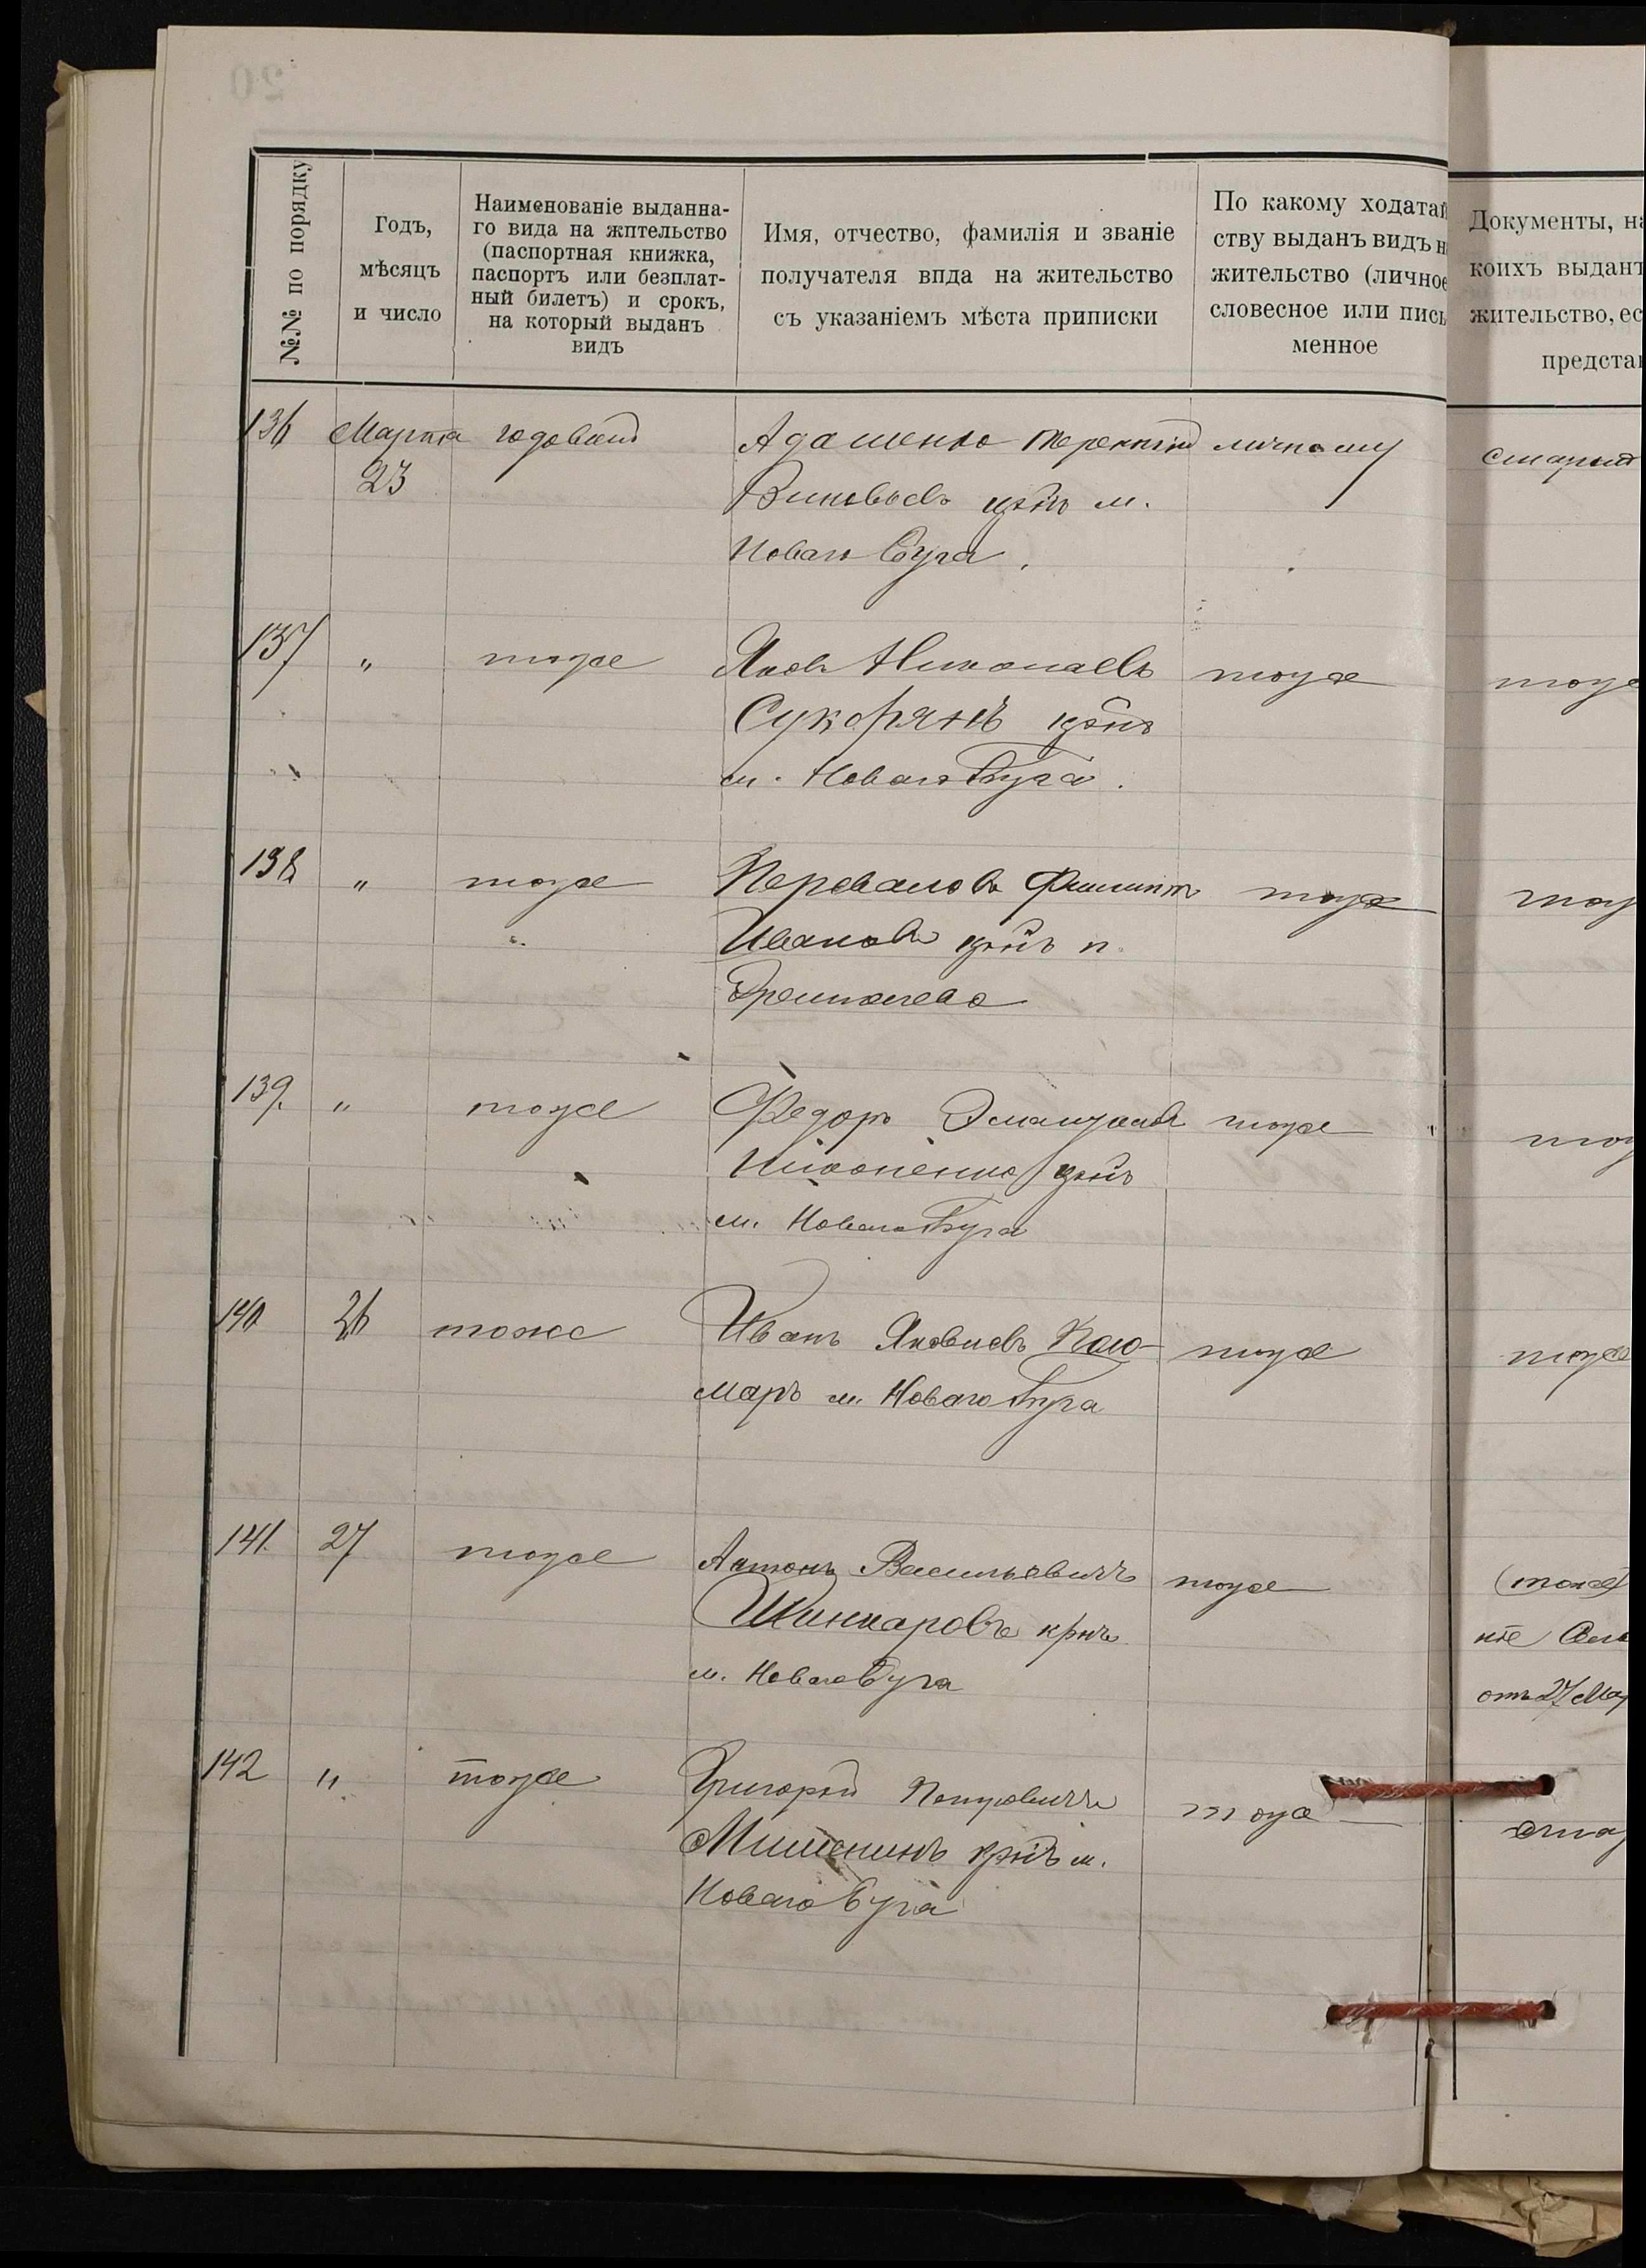 №№ по порядку
Годъ,
мѣсяцъ
и число
Наименованіе выданна-
го вида на жительство
(паспортная книжка,
паспортъ или безплат-
ный билетъ) и срокъ,
на который выданъ
видъ
Имя, отчество, фамилія и званіе
получателя вида на жительство
съ указаніемъ мѣста приписки
По какому ходатай
ству выданъ видъ н
жительство (личное
словесное или пись
менное
Документы, на
коихъ выданъ
жительство, ес
представ
136 Марта годовой Адаменко Терентій личному старый
23 Зиновьевъ крнъ м.
Новаго Буга.
137 " тоже Яковъ Николаевъ тоже тоже
Сукорянъ крнъ
м. Новаго Буга.
138 " тоже Переваловъ Филиппъ тоже тож
Ивановъ крнъ п.
139. " тоже Федоръ тоже тож
крнъ
м. Новаго Буга
140 26 тоже Иванъ Яковлевъ тоже тоже
маръ м. Новаго Буга
141. 27 тоже Антонъ Васильевичъ тоже (тоже)
Шинкаровъ крнъ
м. Новаго Буга отъ 27 Мар
142 " тоже Григорій тоже стар
Мишенинъ крнъ м.
Новаго Буга